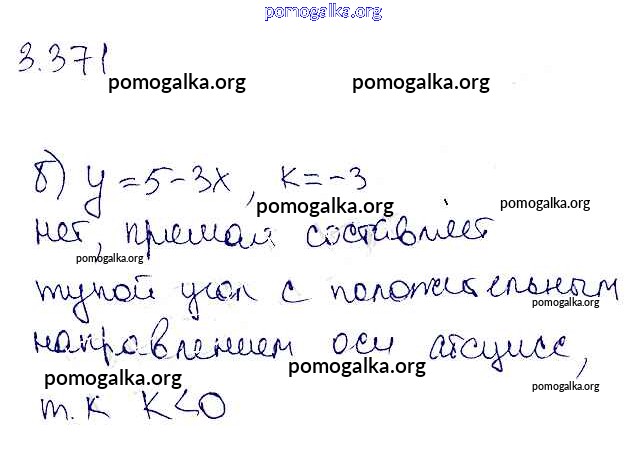 pomogalka.org
3.371
pomogalka.org pomogalka.org
б) y = 5 - 3x, k = -3
pomogalka.org pomogalka.org
нет, прямая составляет
pomogalka.org
тупой угол с положительным
pomogalka.org
направлением оси абсцисс,
pomogalka.org pomogalka.org
pomogalka.org
т.к K<0